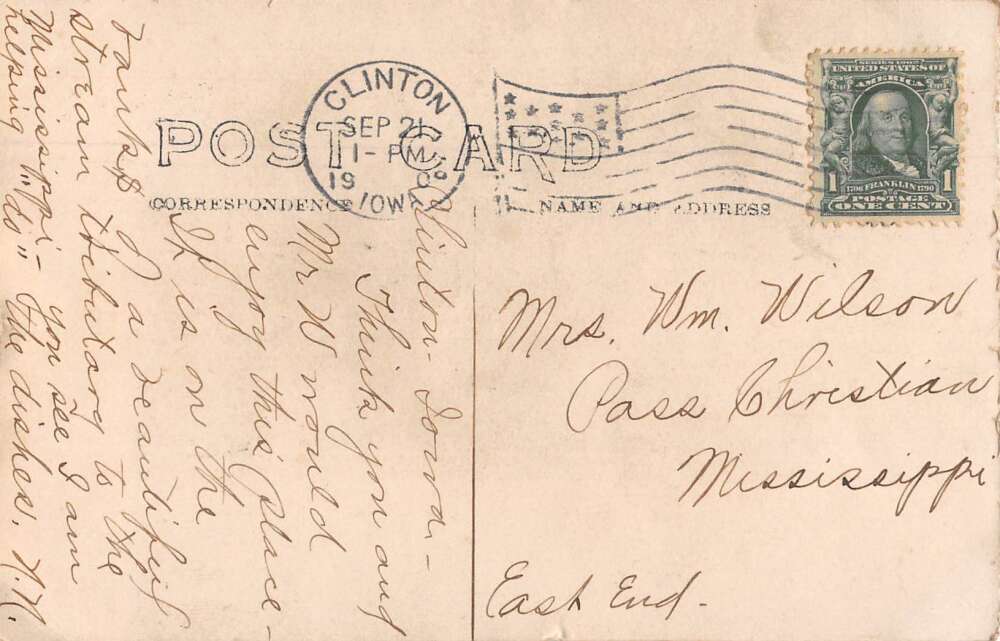 POST CARD
CORRESPONDENCE
NAME AND ADDRESS
CLINTON
SEP 21
1-PM
19 0
IOWA
SERIES 1902
UNITED STATES OF
AMERICA
1706 FRANKLIN 1790
POSTAGE
1 ONE CENT 1
Mrs. Wm. Wilson
Pass Christian
Mississippi
East End.
Clinton - Iowa -
Think you and
Mr W would
enjoy this place -
It is on the
banks
of a beautiful
stream tributary to the
Mississippi - you see I am
helping "do" the dishes. N.N.